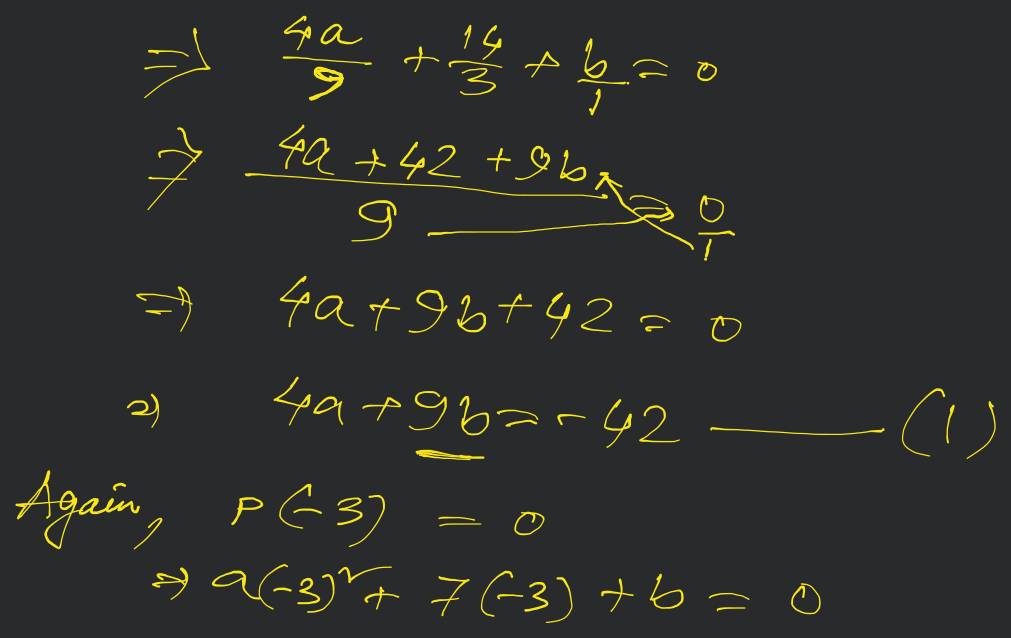 ⇒ 4a/9 + 14/3 + b/1 = 0
⇒ (4a + 42 + 9b)/9 = 0/1
⇒ 4a + 9b + 42 = 0
⇒ 4a + 9b = - 42 ——— (1)
Again, P(-3) = 0
⇒ a(-3)² + 7(-3) + b = 0